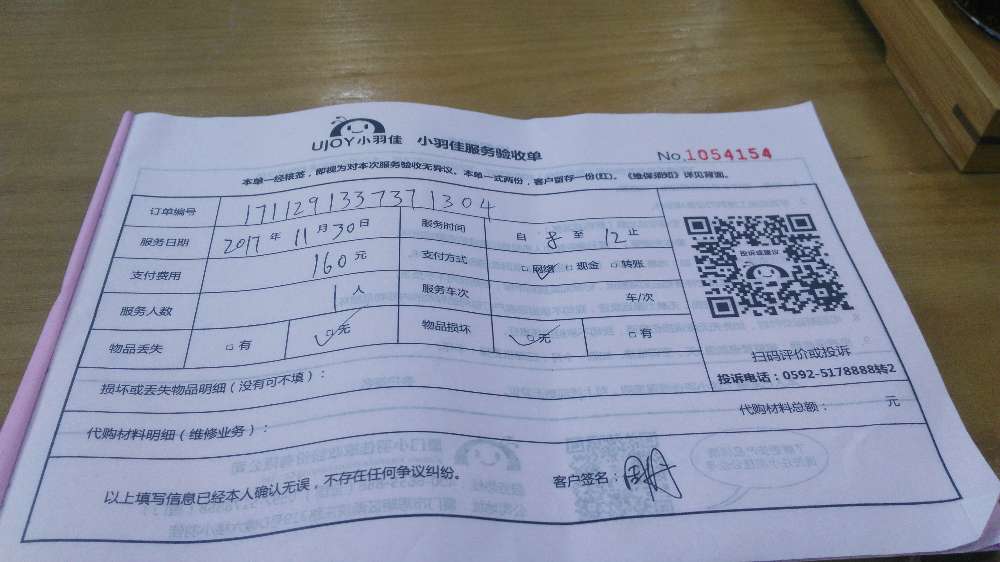 UJOY小羽佳 小羽佳服务验收单
No.1054154
本单一经核签，即视为对本次服务验收无异议、本单一式两份，客户留存一份(红)。《维保须知》详见背面。
订单编号 171129133737 1304
服务日期 2017年11月30日 服务时间 自8至12止
投诉或建议
支付费用 160元 支付方式 □网络 □现金 □转账
服务人数 1人 服务车次 车/次
物品丢失 □有 □无 物品损坏 □无 □有
扫码评价或投诉
投诉电话：0592-5178888转2
损坏或丢失物品明细（没有可不填）：
代购材料明细（维修业务）： 代购材料总额： 元
以上填写信息已经本人确认无误，不存在任何争议纠纷。 客户签名：